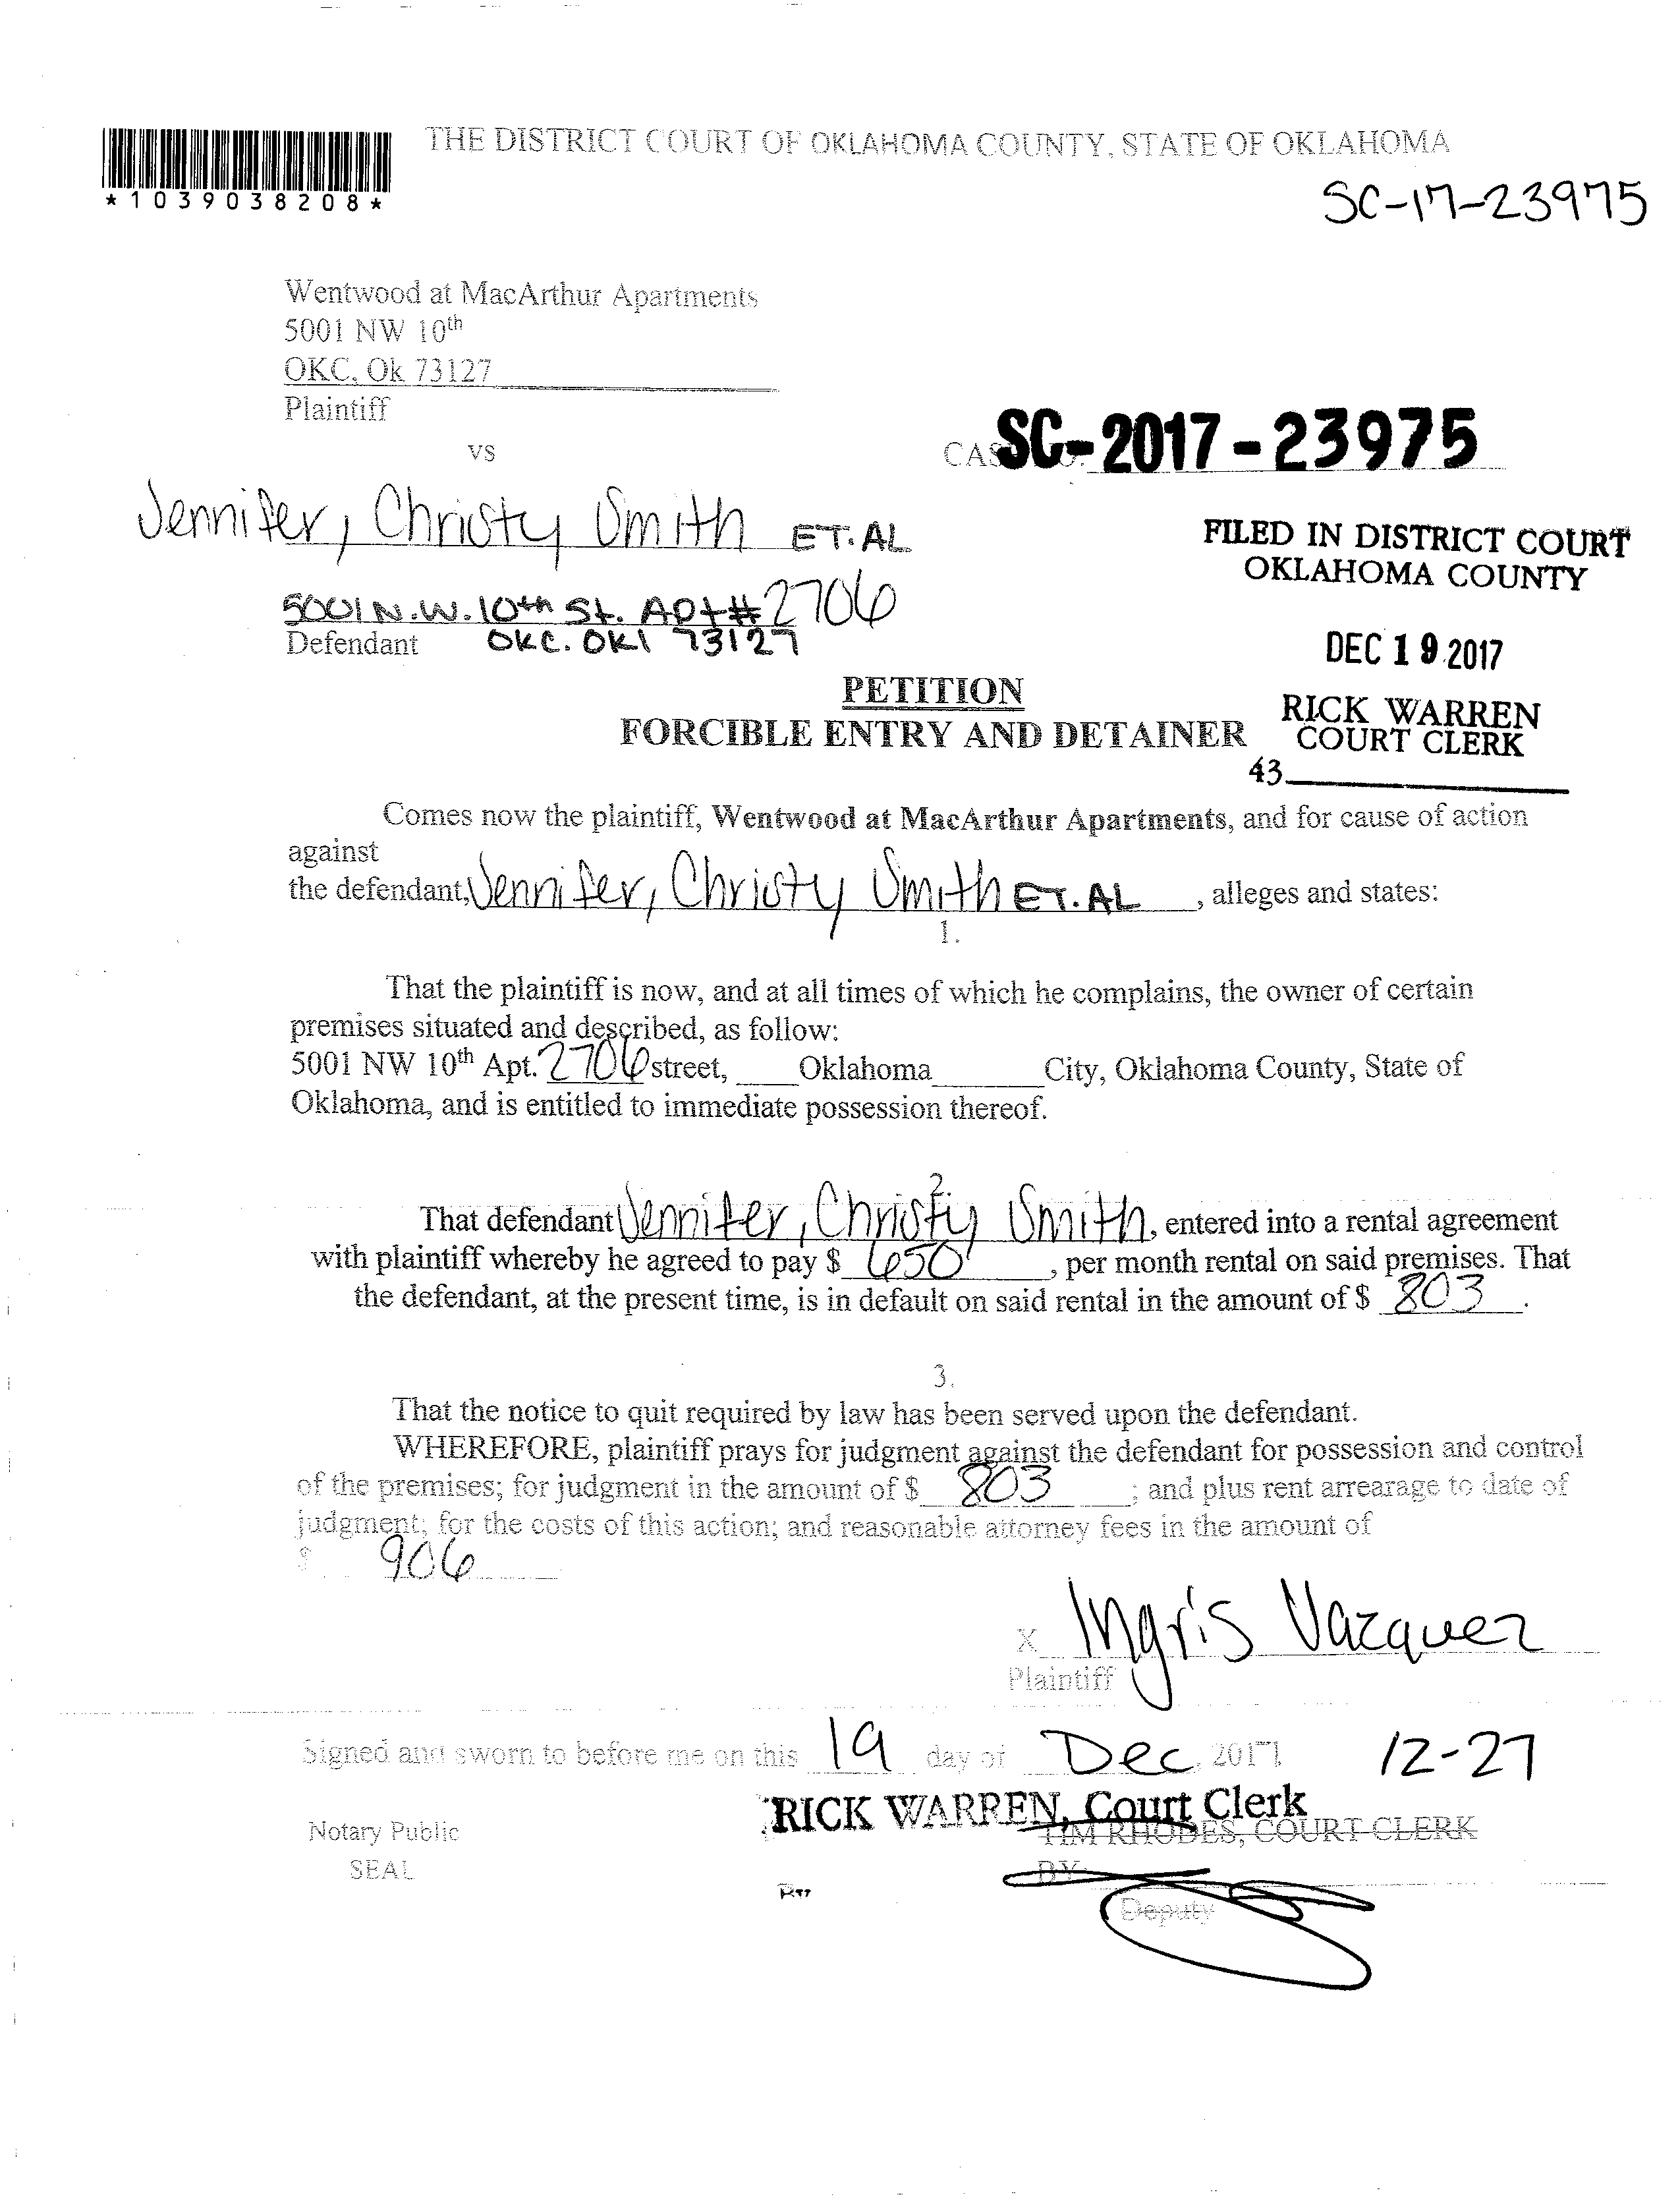 THE DISTRICT COURT OF OKLAHOMA COUNTY, STATE OF OKLAHOMA
*1039038208*
SC-17-23975
Wentwood at MacArthur Apartments
5001 NW 10th
OKC, Ok 73127
Plaintiff
vs
SC-2017-23975
Jennifer, Christy Smith ET.AL
FILED IN DISTRICT COURT
OKLAHOMA COUNTY
5001 N.W. 10th St. Apt# 2706
Defendant OKC. OKl 73127
DEC 19 2017
PETITION
FORCIBLE ENTRY AND DETAINER
RICK WARREN
COURT CLERK
43
Comes now the plaintiff, Wentwood at MacArthur Apartments, and for cause of action
against
the defendant, Jennifer, Christy Smith ET.AL, alleges and states:
1.
That the plaintiff is now, and at all times of which he complains, the owner of certain
premises situated and described, as follow:
5001 NW 10th Apt. 2706 street, Oklahoma City, Oklahoma County, State of
Oklahoma, and is entitled to immediate possession thereof.
2
That defendant Jennifer, Christy Smith, entered into a rental agreement
with plaintiff whereby he agreed to pay $ 650, per month rental on said premises. That
the defendant, at the present time, is in default on said rental in the amount of $ 803.
3.
That the notice to quit required by law has been served upon the defendant.
WHEREFORE, plaintiff prays for judgment against the defendant for possession and control
of the premises; for judgment in the amount of $ 803; and plus rent arrearage to date of
judgment; for the costs of this action; and reasonable attorney fees in the amount of
$ 906
x Ingris Vazquez
Plaintiff
Signed and sworn to before me on this 19 day of Dec, 2017 12-27
RICK WARREN, Court Clerk
TIM RHODES, COURT CLERK
Notary Public
SEAL
BY
Deputy